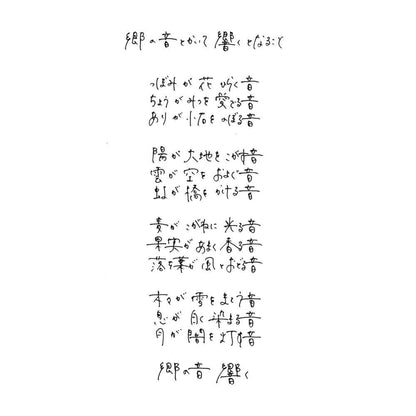 郷の音とかいて 響くとなること
つぼみが花ひらく音
ちょうがみつを愛でる音
ありが小石をのぼる音
陽が大地をこがす音
雲が空をおよぐ音
虹が橋をかける音
麦がこがねに光る音
果実があまく香る音
落ち葉が風とおどる音
木々が雪をまとう音
息が白く染まる音
月が闇を灯す音
郷の音 響く